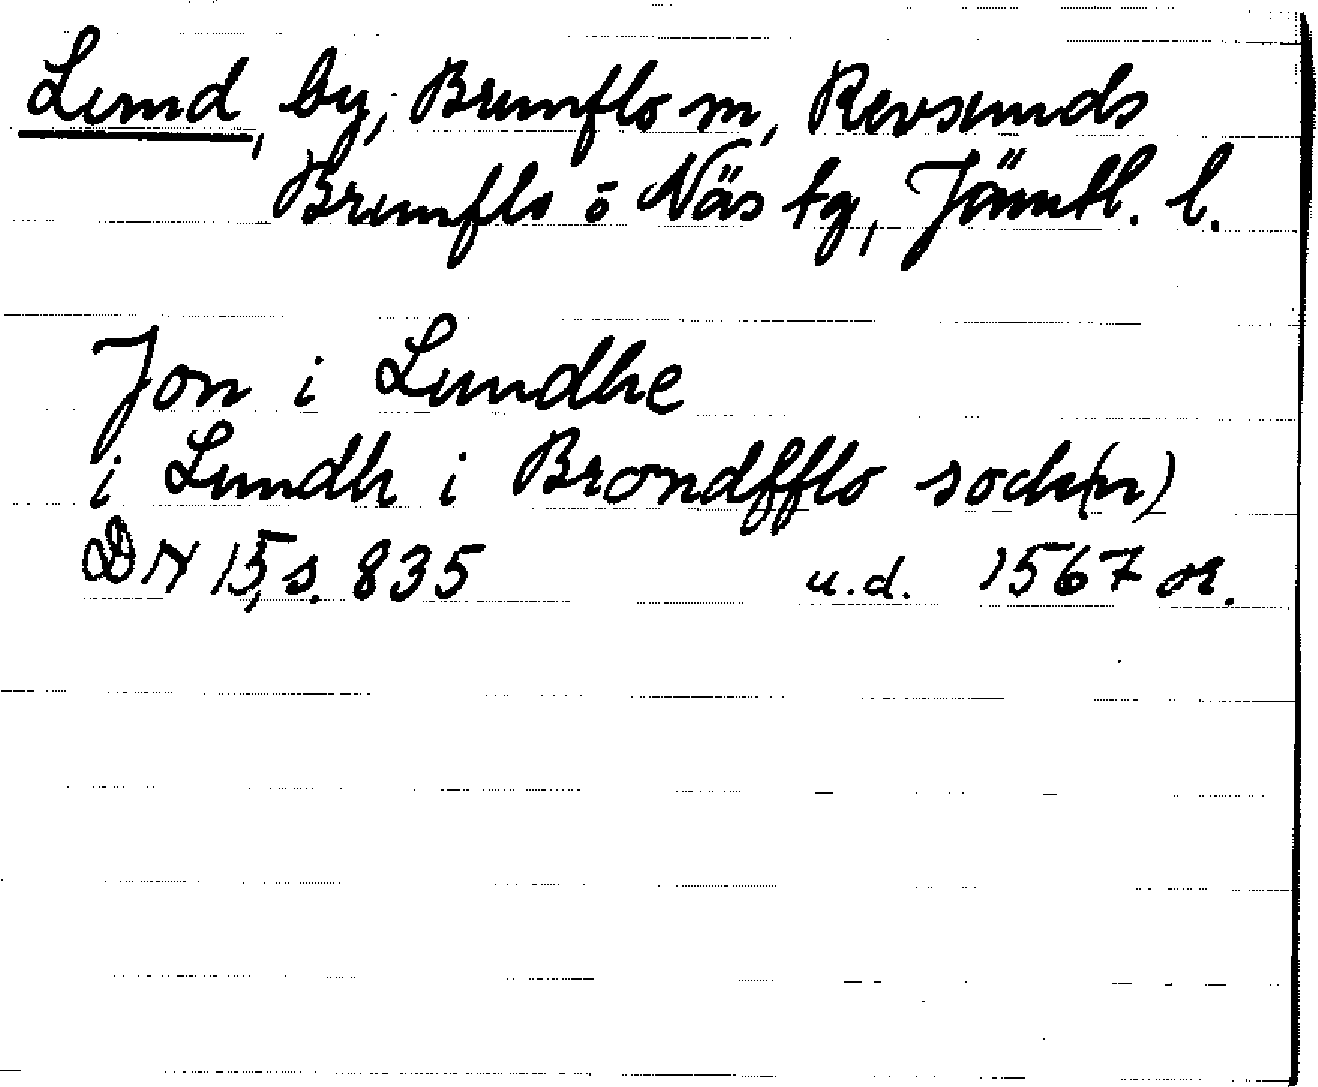 Lund, by, Brunflo sn, Revsunds
Brunflo o Näs tg, Jämtl. l.
Jon i Lundhe
i Lundh i Brondfflo sock(n)
DN 15, s. 835 u.d. 1567 or.